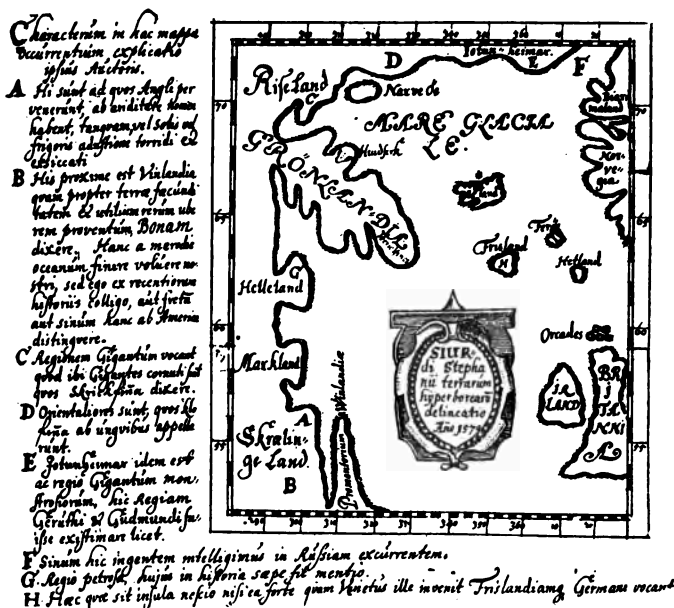 Characterum in hac mappa
occurrentium explicatio
ipsius Auctoris.
A Hi sunt ad quos Angli per
venerunt, ab ariditate nomen
habent, tanquam vel Solis vel
frigoris adustione torridi ex
exsiccati
B His proxime est Vinlandia
quam propter terræ fæcundi
tatem et utilium rerum ube
rem proventum, Bonam
dixere. Hanc a meridie
oceanum finire voluere no
stri, sed ego ex recentiorum
historiis colligo, aut fretum
aut sinum hanc ab America
distinguere.
C Regionem Gigantum vocant
quod ibi Gigantes cornuti sint
quos Skrikfinna dixere.
D Orientaliores sunt, quos Klo
finna ab unguibus appella
runt.
E Jotunheimar idem est
ac regio Gigantum mon
strosorum, hic Regiam
Geruthi et Gudmundi fu-
isse existimare licet.
F Sinum hic ingentem intelligimus in Russiam excurrentem.
G Regio petrosa, hujus in historia sæpe fit mentio.
H Hæc quæ sit insula nescio nisi ea forte quam Venetus ille invenit Frislandiamq Germani vocant
D
Jotun-heimar.
E
F
Riseland
C
Narve oe
MARE GLACIA
LE.
Biarmaland
Norvegia
GRÖNLANDIA
Huidserk
Ferö
Frisland
H
Hetland
G
Helleland
Orcades
Markland
A
Skrælin-
ge Land.
B
Promontorium Winlandiæ
IR
LAND
BRI
TA
NNI
A
SIUR-
di Stepha
nii terrarum
hyperborearū
delineatio
Año 1570